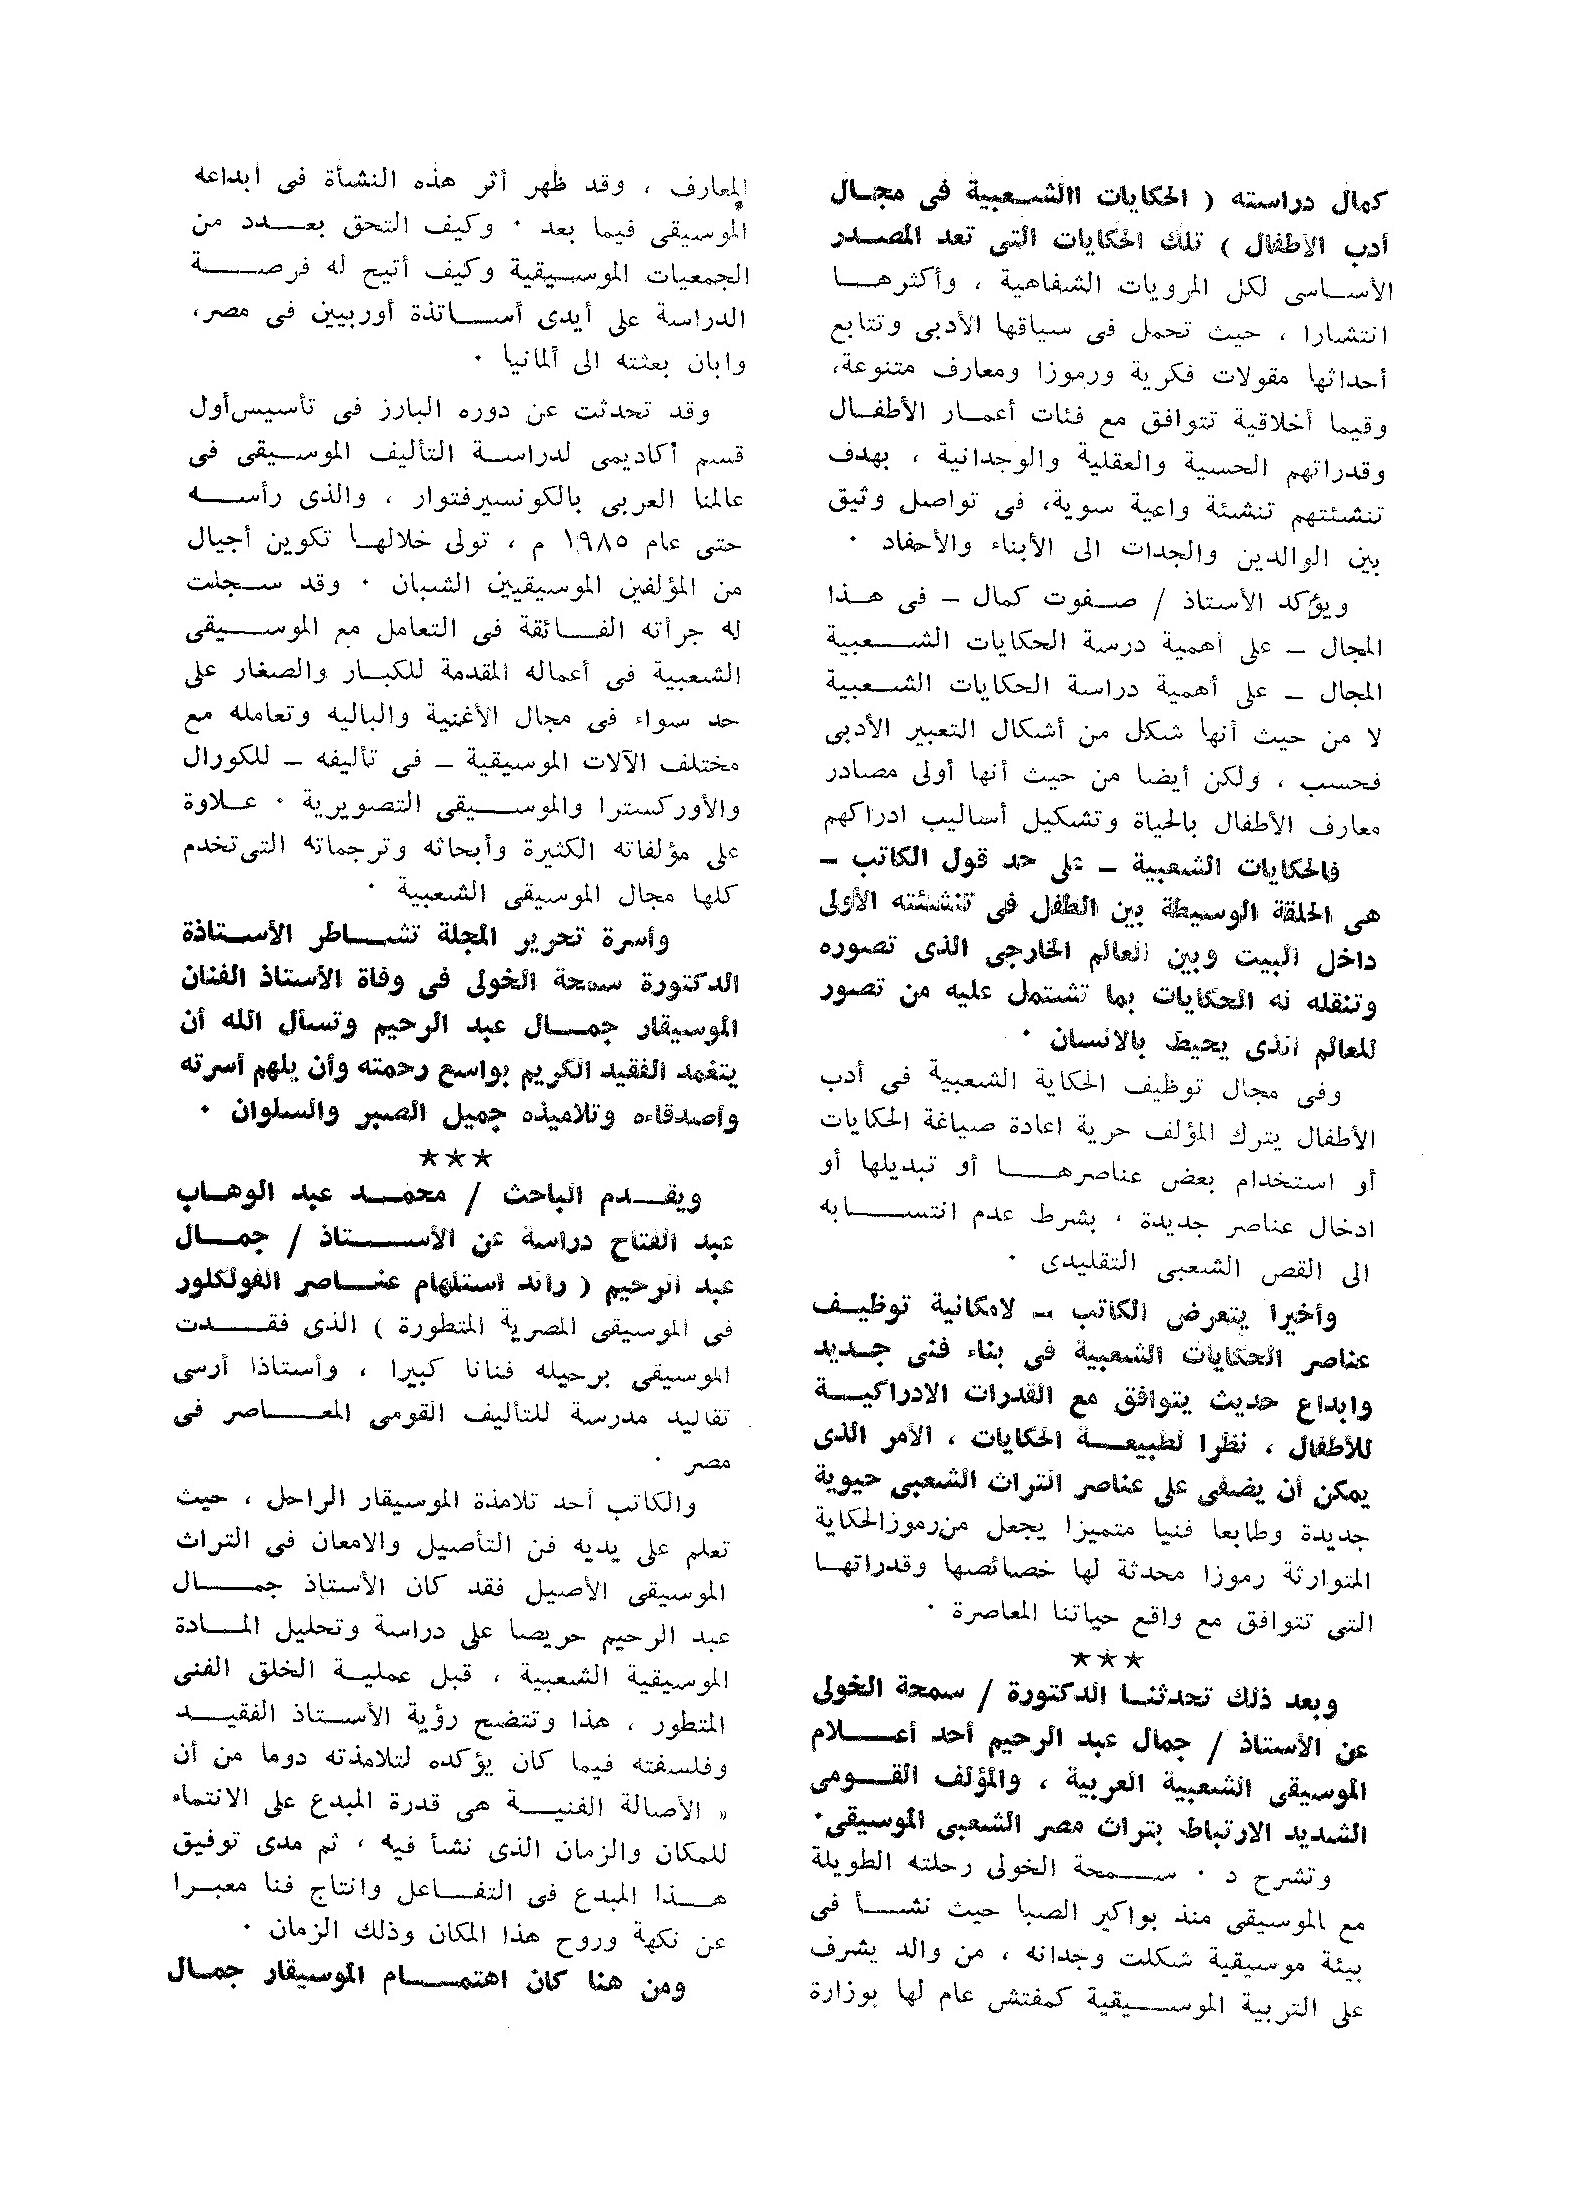 كمال دراسته ( الحكايات االشعبية فى مجال
أدب الأطفال ) تلك الحكايات التى تعد المصدر
الأساسى لكل المرويات الشفاهية ، وأكثرها
انتشارا ، حيث تحمل فى سياقها الأدبى وتتابع
أحداثها مقولات فكرية ورموزا ومعارف متنوعة،
وقيما أخلاقية تتوافق مع فئات أعمار الأطفال
وقدراتهم الحسية والعقلية والوجدانية ، بهدف
تنشئتهم تنشئة واعية سوية، فى تواصل وثيق
بين الوالدين والجدات الى الأبناء والأحفاد ٠
ويؤكد الأستاذ / صفوت كمال – فى هذا
المجال – على أهمية درسة الحكايات الشعبية
المجال – على أهمية دراسة الحكايات الشعبية
لا من حيث أنها شكل من أشكال التعبير الأدبى
فحسب ، ولكن أيضا من حيث أنها أولى مصادر
معارف الأطفال بالحياة وتشكيل أساليب ادراكهم
فالحكايات الشعبية – على حد قول الكاتب –
هى الحلقة الوسيطة بين الطفل فى تنشئته الأولى
داخل البيت وبين العالم الخارجى الذى تصوره
وتنقله له الحكايات بما تشتمل عليه من تصور
للعالم الذى يحيط بالانسان ٠
وفى مجال توظيف الحكاية الشعبية فى أدب
الأطفال يترك المؤلف حرية اعادة صياغة الحكايات
أو استخدام بعض عناصرها أو تبديلها أو
ادخال عناصر جديدة ، بشرط عدم انتسابه
الى القص الشعبى التقليدى ٠
وأخيرا يتعرض الكاتب – لامكانية توظيف
عناصر الحكايات الشعبية فى بناء فنى جديد
وابداع حديث يتوافق مع القدرات الادراكية
للأطفال ، نظرا لطبيعة الحكايات ، الأمر الذى
يمكن أن يضفى على عناصر التراث الشعبى حيوية
جديدة وطابعا فنيا متميزا يجعل من رموز الحكاية
المتوارثة رموزا محدثة لها خصائصها وقدراتها
التى تتوافق مع واقع حياتنا المعاصرة ٠
★★★
وبعد ذلك تحدثنا الدكتورة / سمحة الخولى
عن الأستاذ / جمال عبد الرحيم أحد أعلام
الموسيقى الشعبية العربية ، والمؤلف القومى
الشديد الارتباط بتراث مصر الشعبى الموسيقى٠
وتشرح د ٠ سمحة الخولى رحلته الطويلة
مع الموسيقى منذ بواكير الصبا حيث نشأ فى
بيئة موسيقية شكلت وجدانه ، من والد يشرف
على التربية الموسيقية كمفتش عام لها بوزارة
المعارف ، وقد ظهر أثر هذه النشأة فى ابداعه
الموسيقى فيما بعد ٠ وكيف التحق بعدد من
الجمعيات الموسيقية وكيف أتيح له فرصة
الدراسة على أيدى أساتذة أوربيين فى مصر،
وابان بعثته الى ألمانيا ٠
وقد تحدثت عن دوره البارز فى تأسيس أول
قسم أكاديمى لدراسة التأليف الموسيقى فى
عالمنا العربى بالكونسيرفتوار ، والذى رأسه
حتى عام ١٩٨٥ م ، تولى خلالها تكوين أجيال
من المؤلفين الموسيقيين الشبان ٠ وقد سجلت
له جرأته الفائقة فى التعامل مع الموسيقى
الشعبية فى أعماله المقدمة للكبار والصغار على
حد سواء فى مجال الأغنية والباليه وتعامله مع
مختلف الآلات الموسيقية – فى تأليفه – للكورال
والأوركسترا والموسيقى التصويرية ٠ علاوة
على مؤلفاته الكثيرة وأبحاثه وترجماته التى تخدم
كلها مجال الموسيقى الشعبية ٠
وأسرة تحرير المجلة تشاطر الأستاذة
الدكتورة سمحة الخولى فى وفاة الأستاذ الفنان
الموسيقار جمال عبد الرحيم وتسأل الله أن
يتغمد الفقيد الكريم بواسع رحمته وأن يلهم أسرته
وأصدقاءه وتلاميذه جميل الصبر والسلوان ٠
★★★
ويقدم الباحث / محمد عبد الوهاب
عبد الفتاح دراسة عن الأستاذ / جمال
عبد الرحيم ( رائد استلهام عناصر الفولكلور
فى الموسيقى المصرية المتطورة ) الذى فقدت
الموسيقى برحيله فنانا كبيرا ، وأستاذا أرسى
تقاليد مدرسة للتأليف القومى المعاصر فى
مصر ٠
والكاتب أحد تلامذة الموسيقار الراحل ، حيث
تعلم على يديه فن التأصيل والامعان فى التراث
الموسيقى الأصيل فقد كان الأستاذ جمال
عبد الرحيم حريصا على دراسة وتحليل المادة
الموسيقية الشعبية ، قبل عملية الخلق الفنى
المتطور ، هذا وتتضح رؤية الأستاذ الفقيد
وفلسفته فيما كان يؤكده لتلامذته دوما من أن
« الأصالة الفنية هى قدرة المبدع على الانتماء
للمكان والزمان الذى نشأ فيه ، ثم مدى توفيق
هذا المبدع فى التفاعل وانتاج فنا معبرا
عن نكهة وروح هذا المكان وذلك الزمان ٠
ومن هنا كان اهتمام الموسيقار جمال